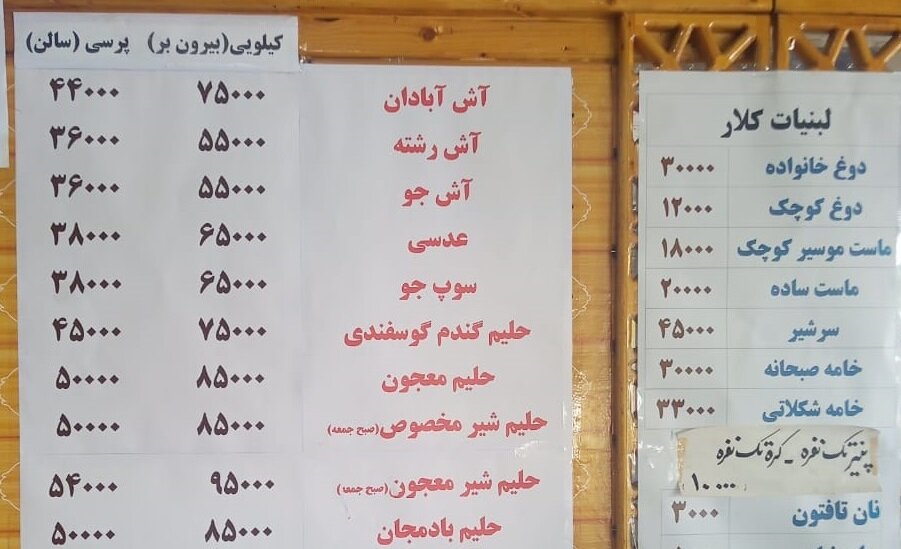 کیلویی(بیرون بر) پرسی (سالن)
آش آبادان ۷۵۰۰۰ ۴۴۰۰۰
آش رشته ۵۵۰۰۰ ۳۶۰۰۰
آش جو ۵۵۰۰۰ ۳۶۰۰۰
عدسی ۶۵۰۰۰ ۳۸۰۰۰
سوپ جو ۶۵۰۰۰ ۳۸۰۰۰
حلیم گندم گوسفندی ۷۵۰۰۰ ۴۵۰۰۰
حلیم معجون ۸۵۰۰۰ ۵۰۰۰۰
حلیم شیر مخصوص(صبح جمعه) ۸۵۰۰۰ ۵۰۰۰۰
حلیم شیر معجون(صبح جمعه) ۹۵۰۰۰ ۵۴۰۰۰
حلیم بادمجان ۸۵۰۰۰ ۵۰۰۰۰
لبنیات کلار
دوغ خانواده ۳۰۰۰۰
دوغ کوچک ۱۲۰۰۰
ماست موسیر کوچک ۱۸۰۰۰
ماست ساده ۲۰۰۰۰
سرشیر ۴۵۰۰۰
خامه صبحانه ۳۰۰۰۰
خامه شکلاتی ۳۳۰۰۰
پنیر تک نفره - کره تک نفره
۱۰۰۰۰
نان تافتون ۳۰۰۰